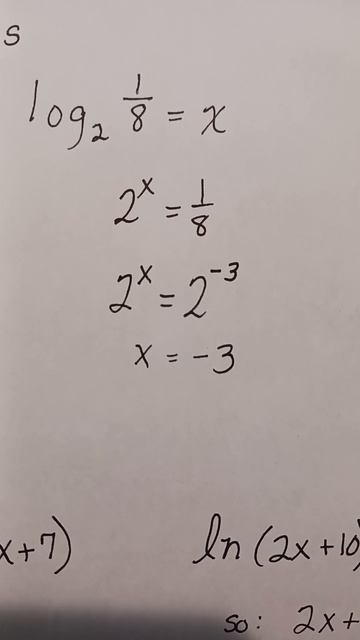 s
log₂ 1/8 = x
2^x = 1/8
2^x = 2^-3
x = -3
x+7) ln (2x+10)
so: 2x+